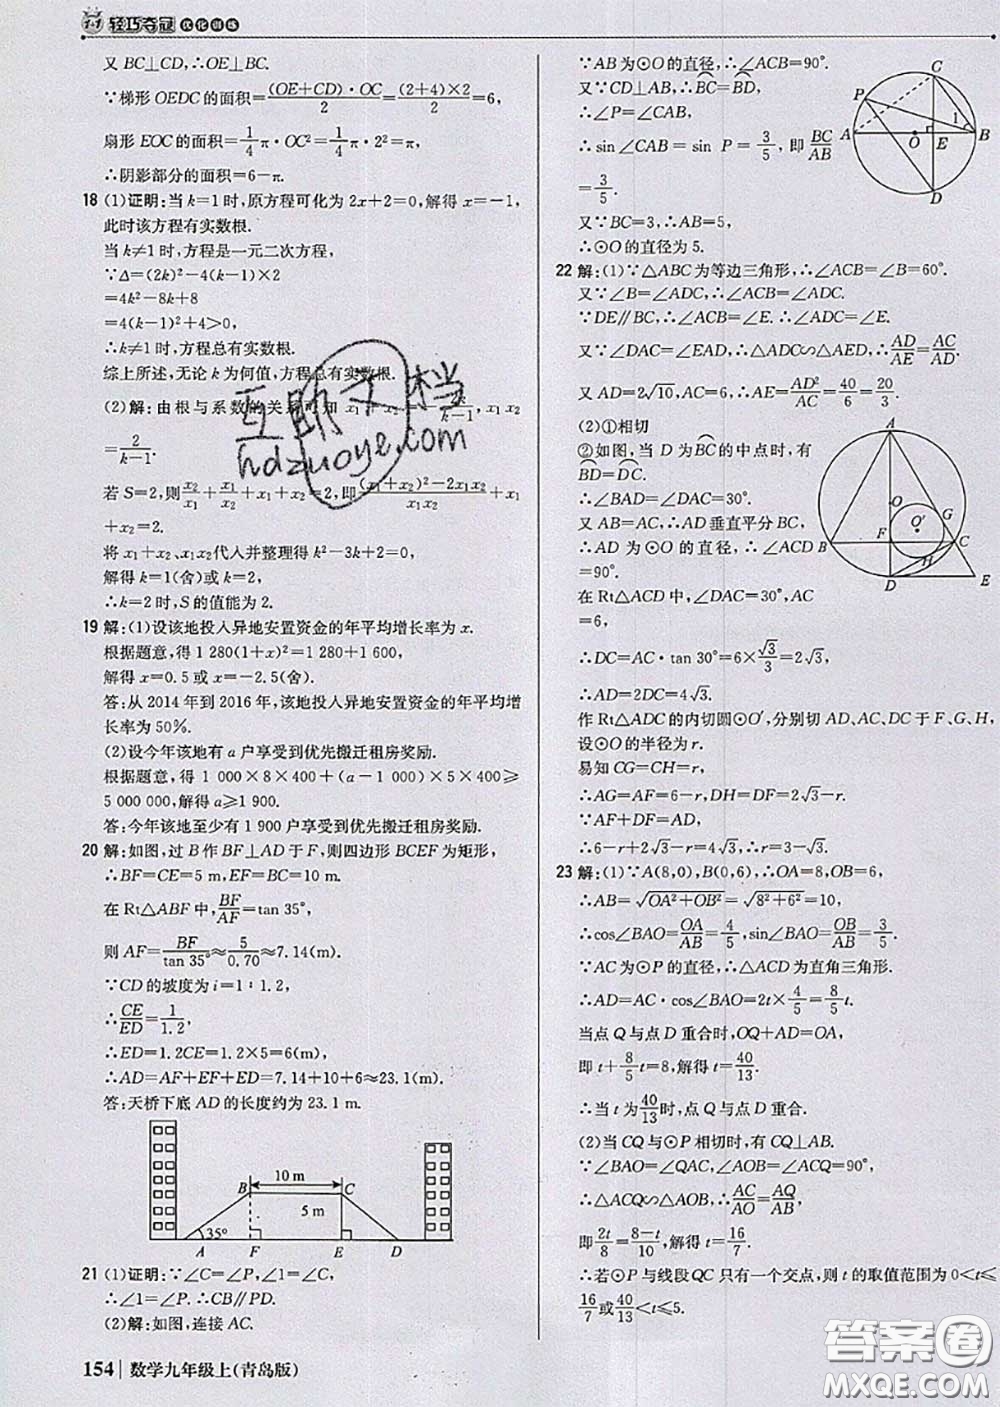 轻巧夺冠 优化训练
又 BC⊥CD,∴OE⊥BC.
∵梯形 OEDC 的面积=(OE+CD)·OC/2=(2+4)×2/2=6,
扇形 EOC 的面积=1/4π·OC²=1/4π·2²=π,
∴阴影部分的面积=6-π.
18 (1)证明:当 k=1 时,原方程可化为 2x+2=0,解得 x=-1,
此时该方程有实数根.
当 k≠1 时,方程是一元二次方程,
∵Δ=(2k)²-4(k-1)×2
=4k²-8k+8
=4(k-1)²+4>0,
∴k≠1 时,方程总有实数根.
综上所述,无论 k 为何值,方程总有实数根.
(2)解:由根与系数的关系可知 x₁+x₂=
k-1, x₁x₂
=2/(k-1).
若 S=2,则 x₂/x₁+x₁/x₂+x₁+x₂=2,即 ((x₁+x₂)²-2x₁x₂)/(x₁x₂)+x₁+
x₂=2.
将 x₁+x₂、x₁x₂代入并整理得 k²-3k+2=0,
解得 k=1(舍)或 k=2,
∴k=2 时,S 的值能为 2.
19 解:(1)设该地投入异地安置资金的年平均增长率为 x.
根据题意,得 1 280(1+x)²=1 280+1 600,
解得 x=0.5 或 x=-2.5(舍).
答:从 2014 年到 2016 年,该地投入异地安置资金的年平均增
长率为 50%.
(2)设今年该地有 a 户享受到优先搬迁租房奖励.
根据题意,得 1 000×8×400+(a-1 000)×5×400≥
5 000 000,解得 a≥1 900.
答:今年该地至少有 1 900 户享受到优先搬迁租房奖励.
20 解:如图,过 B 作 BF⊥AD 于 F,则四边形 BCEF 为矩形,
∴BF=CE=5 m,EF=BC=10 m.
在 Rt△ABF 中,BF/AF=tan 35°,
则 AF=BF/tan 35°≈5/0.70≈7.14(m).
∵CD 的坡度为 i=1∶1.2,
∴CE/ED=1/1.2,
∴ED=1.2CE=1.2×5=6(m),
∴AD=AF+EF+ED=7.14+10+6≈23.1(m).
答:天桥下底 AD 的长度约为 23.1 m.
10 m
B C
5 m
35°
A F E D
21 (1)证明:∵∠C=∠P,∠1=∠C,
∴∠1=∠P.∴CB∥PD.
(2)解:如图,连接 AC.
∵AB 为⊙O 的直径,∴∠ACB=90°.
又∵CD⊥AB,∴BC=BD,
∴∠P=∠CAB,
∴sin∠CAB=sin P=3/5,即 BC/AB
=3/5.
又∵BC=3,∴AB=5,
∴⊙O 的直径为 5.
C
P
1
A O E B
D
22 解:(1)∵△ABC 为等边三角形,∴∠ACB=∠B=60°.
又∵∠B=∠ADC,∴∠ACB=∠ADC.
∵DE∥BC,∴∠ACB=∠E.∴∠ADC=∠E.
又∵∠DAC=∠EAD,∴△ADC∽△AED,∴AD/AE=AC/AD.
又 AD=2√10,AC=6,∴AE=AD²/AC=40/6=20/3.
(2)①相切
②如图,当 D 为BC的中点时,有
BD=DC.
∴∠BAD=∠DAC=30°.
又 AB=AC,∴AD 垂直平分 BC,
∴AD 为⊙O 的直径,∴∠ACD
=90°.
在 Rt△ACD 中,∠DAC=30°,AC
=6,
∴DC=AC·tan 30°=6×√3/3=2√3,
∴AD=2DC=4√3.
A
O
G
O′
B F C
H
D E
作 Rt△ADC 的内切圆⊙O′,分别切 AD,AC,DC 于 F,G,H,
设⊙O 的半径为 r.
易知 CG=CH=r,
∴AG=AF=6-r,DH=DF=2√3-r.
∵AF+DF=AD,
∴6-r+2√3-r=4√3,∴r=3-√3.
23 解:(1)∵A(8,0),B(0,6),∴OA=8,OB=6,
∴AB=√(OA²+OB²)=√(8²+6²)=10,
∴cos∠BAO=OA/AB=4/5,sin∠BAO=OB/AB=3/5.
∵AC 为⊙P 的直径,∴△ACD 为直角三角形.
∴AD=AC·cos∠BAO=2t×4/5=8/5 t.
当点 Q 与点 D 重合时,OQ+AD=OA,
即 t+8/5 t=8,解得 t=40/13.
∴当 t 为40/13时,点 Q 与点 D 重合.
(2)当 CQ 与⊙P 相切时,有 CQ⊥AB.
∵∠BAO=∠QAC,∠AOB=∠ACQ=90°,
∴△ACQ∽△AOB,∴AC/AO=AQ/AB,
即2t/8=(8-t)/10,解得 t=16/7.
∴若⊙P 与线段 QC 只有一个交点,则 t 的取值范围为 0<t≤
16/7或40/13<t≤5.
154 数学九年级上(青岛版)
互助文档
hdzuoye.com
答案圈
MXQE.COM